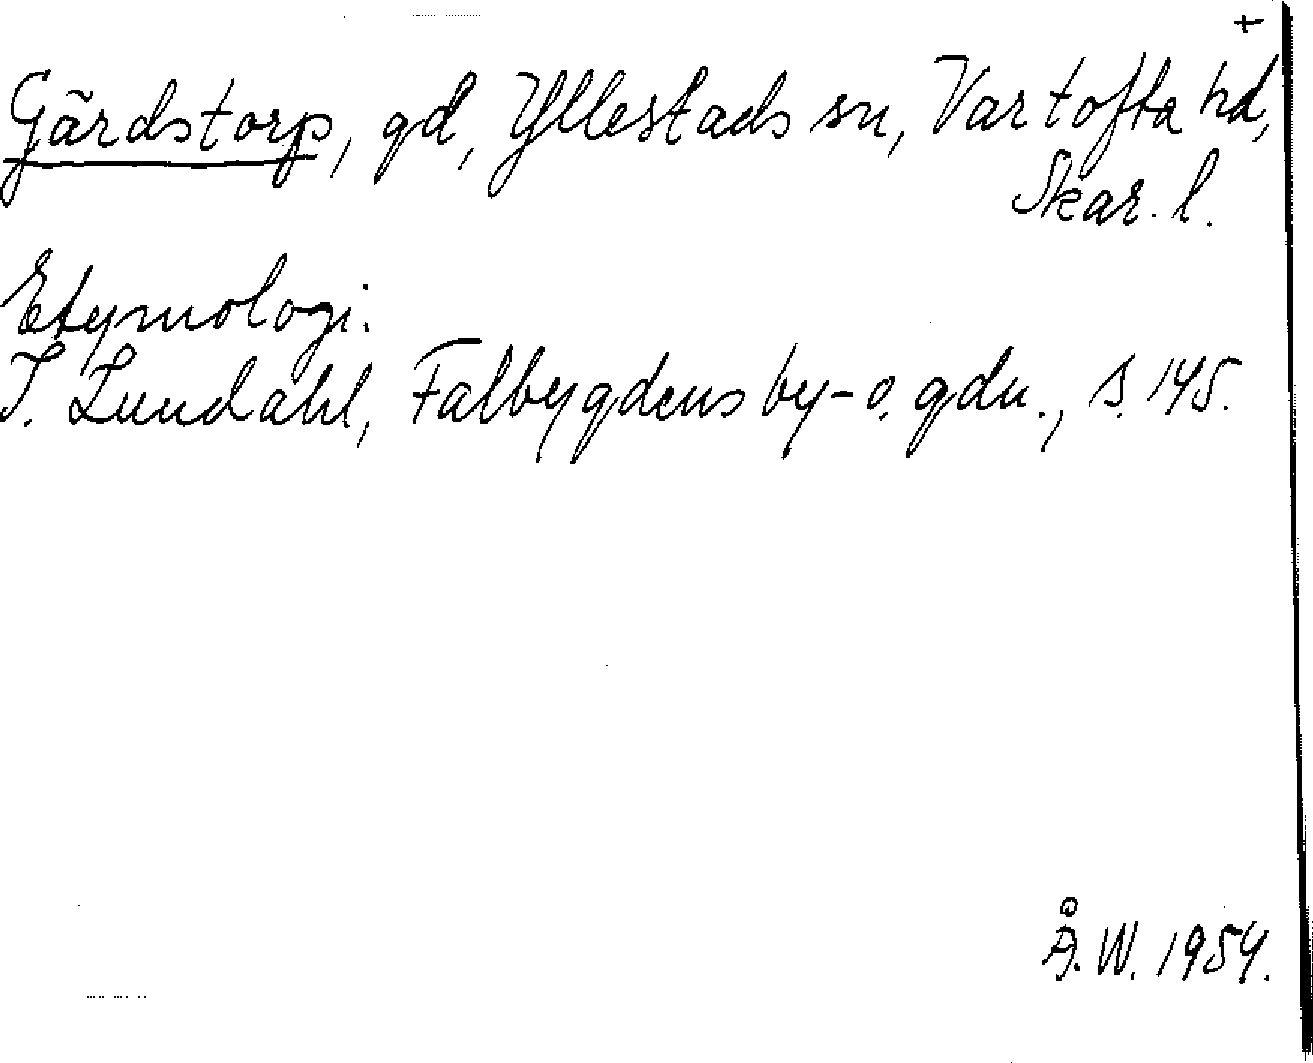 t
Gärdstorp, gd, Yllestads sn, Vartofta hd,
Skar. l.
Etymologi:
I. Lundahl, Falbygdens by- o. gdn., s. 145.
Å. W. 1954.